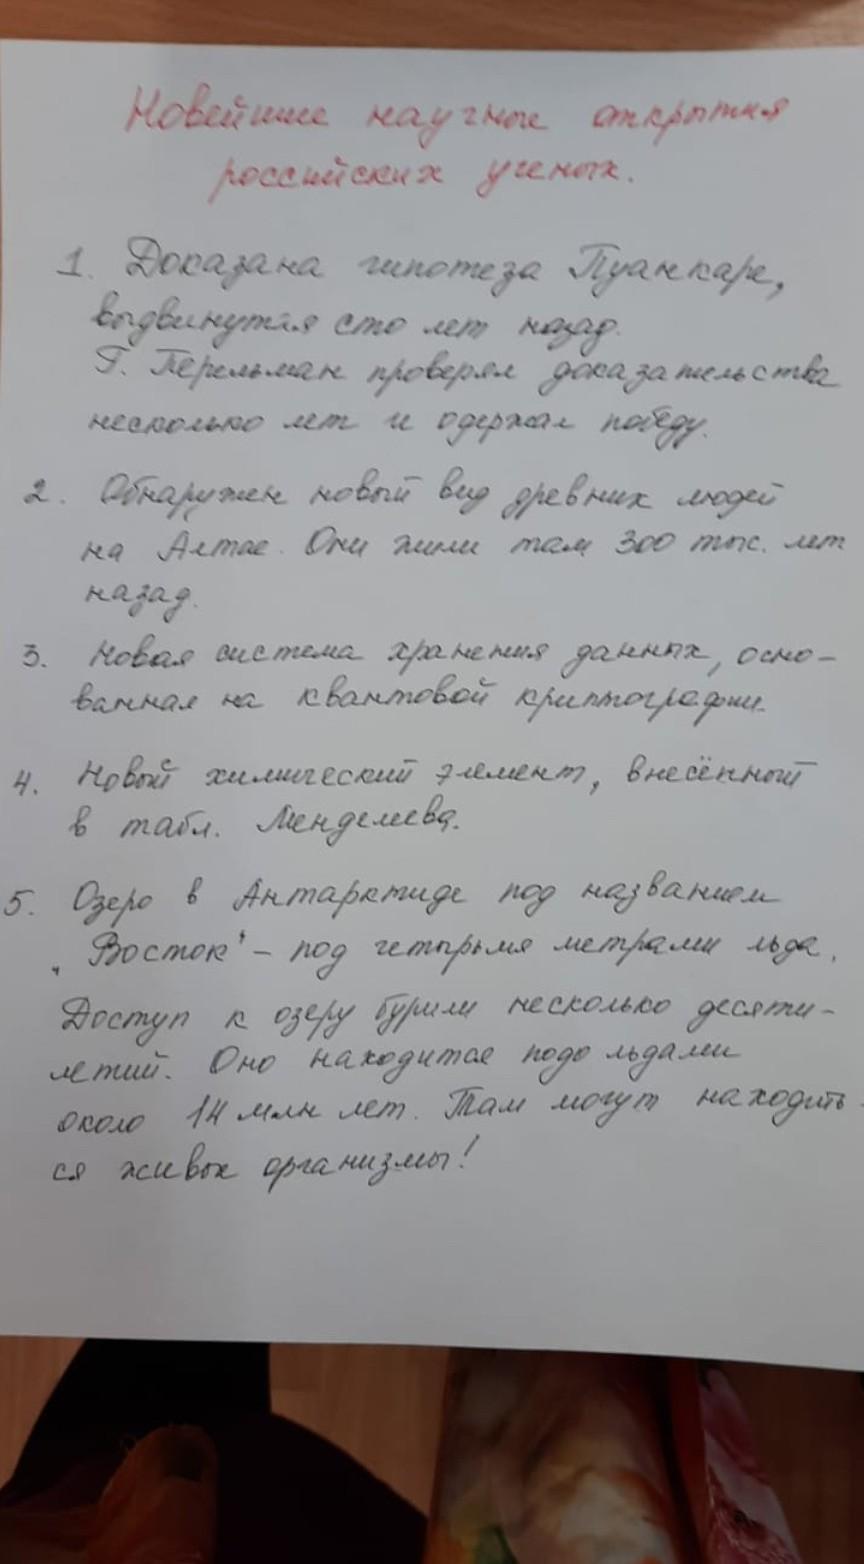 Новейшие научные открытия
российских ученых.
1. Доказана гипотеза Пуанкаре,
выдвинутая сто лет назад.
Г. Перельман проверял доказательства
несколько лет и одержал победу.
2. Обнаружен новый вид древних людей
на Алтае. Они жили там 300 тыс. лет
назад.
3. Новая система хранения данных, осно-
ванная на квантовой криптографии.
4. Новый химический элемент, внесённый
в табл. Менделеева.
5. Озеро в Антарктиде под названием
„Восток" – под четырьмя метрами льда.
Доступ к озеру бурили несколько десяти-
летий. Оно находится подо льдами
около 14 млн лет. Там могут находить-
ся живые организмы!